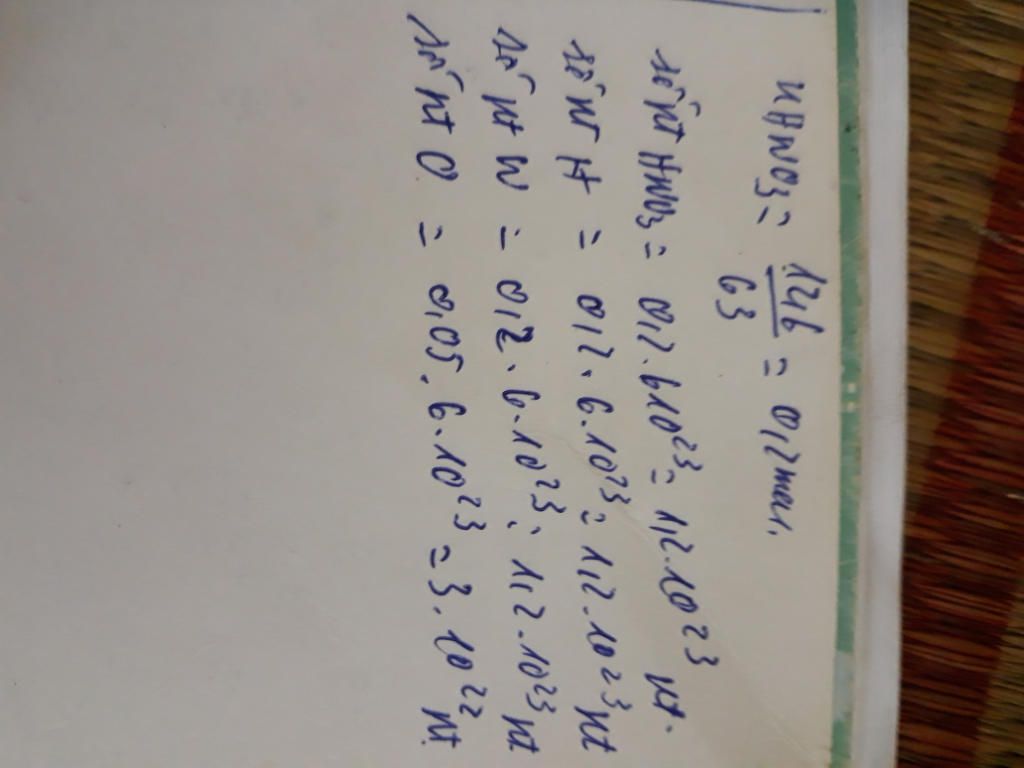 nHNO3 = 12,6 / 63 = 0,2 mol.
số pt HNO3 = 0,2 . 6 10^23 = 1,2 . 10^23 pt.
số nt H = 0,2 . 6 . 10^23 = 1,2 . 10^23 nt
số nt N = 0,2 . 6 . 10^23 = 1,2 . 10^23 nt
số nt O = 0,05 . 6 . 10^23 = 3 . 10^22 nt